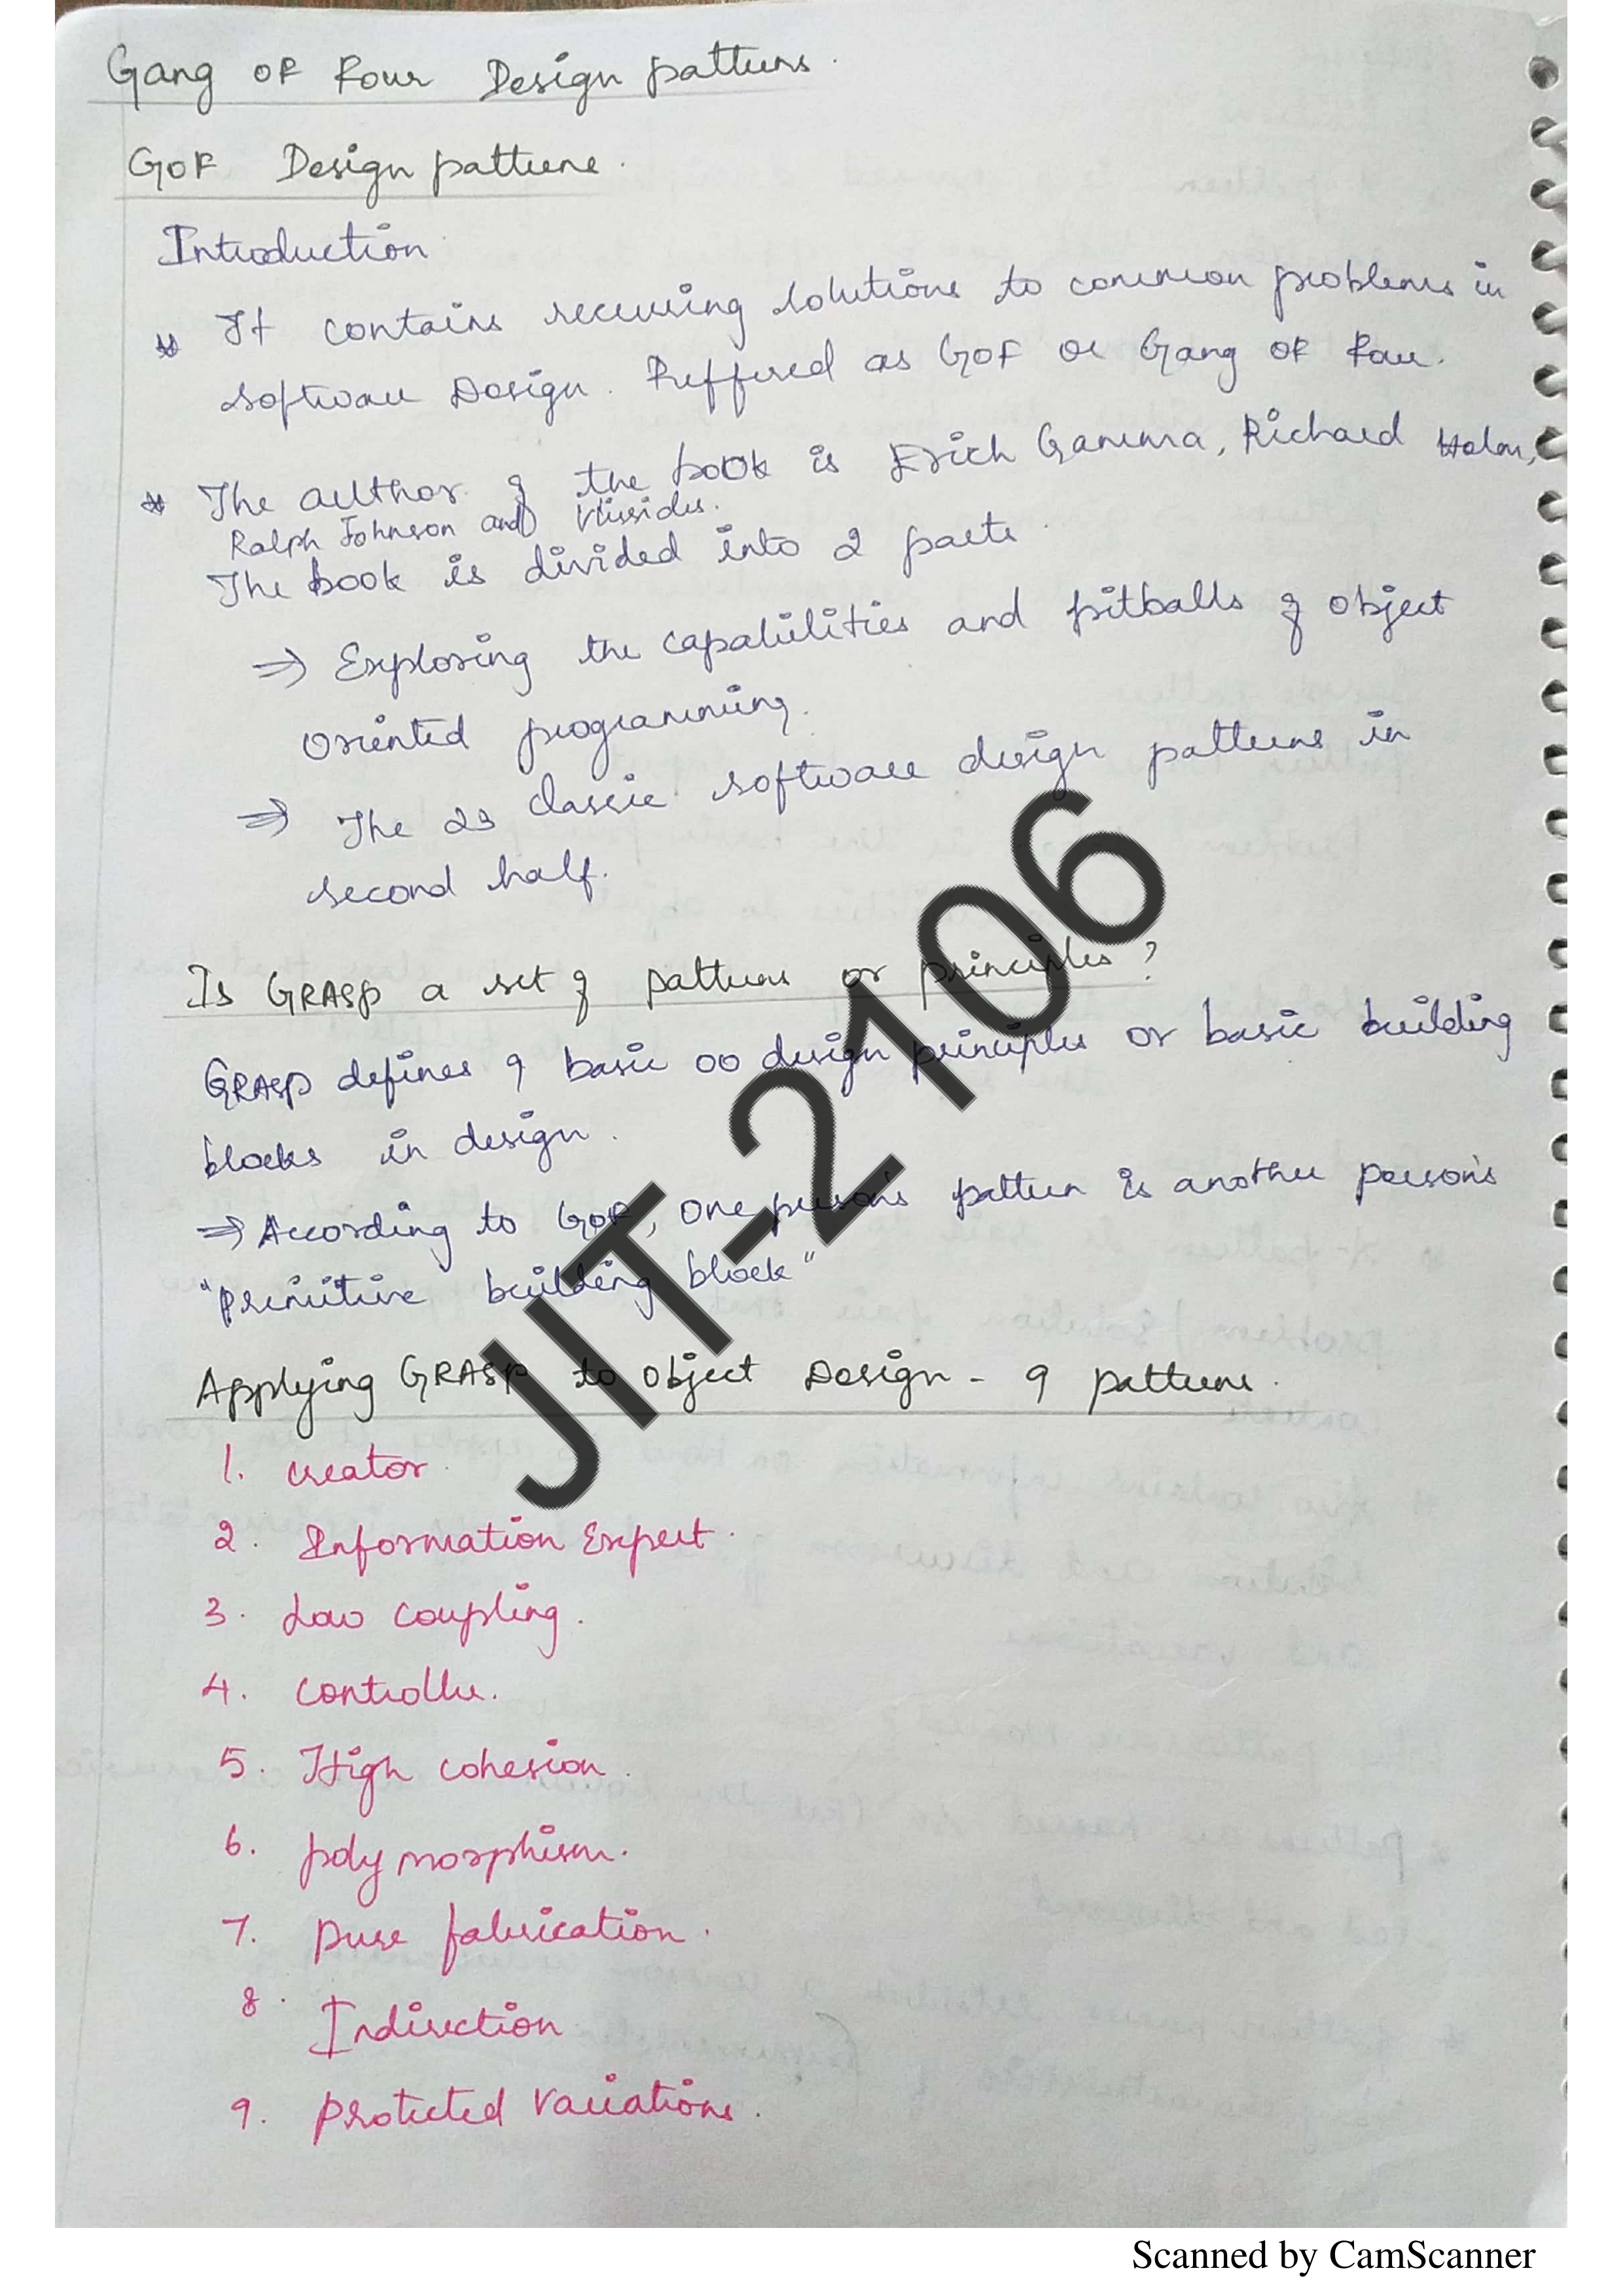 Gang of Four Design patterns.
GoF Design patterns.
Introduction
* It contains recurring solutions to common problems in
software Design. Reffered as GoF or Gang of Four.
* The author of the book is Erich Gamma, Richard Helm,
Ralph Johnson and Vlissides.
The book is divided into 2 parts.
⇒ Exploring the capabilities and pitballs of object
oriented programming.
⇒ The 23 classic software design patterns in
second half.
Is GRASP a set of patterns or principles?
GRASP defines 9 basic OO design principles or basic building
blocks in design.
⇒ According to GoF, one person's pattern is another person's
"primitive building block"
Applying GRASP to object Design - 9 patterns.
1. creator.
2. Information Expert.
3. Low coupling.
4. controller.
5. High cohesion.
6. polymorphism.
7. pure fabrication.
8. Indirection
9. protected variations.
JIT-2106
Scanned by CamScanner